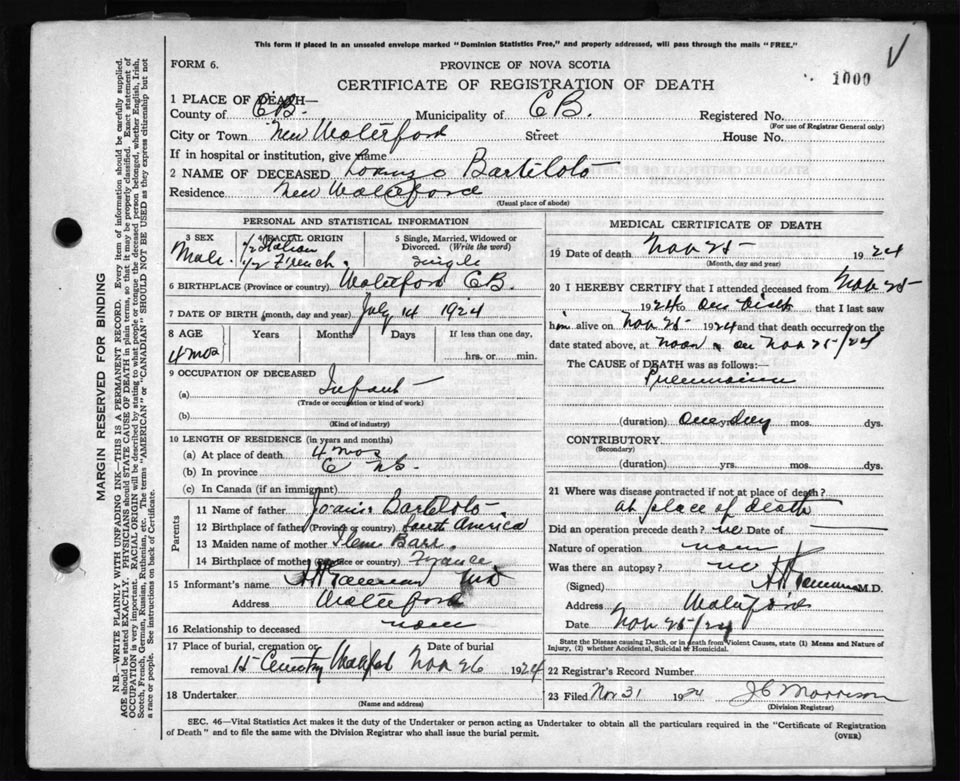 This form if placed in an unsealed envelope marked "Dominion Statistics Free," and properly addressed, will pass through the mails "FREE."
FORM 6.
PROVINCE OF NOVA SCOTIA
1000
CERTIFICATE OF REGISTRATION OF DEATH
1 PLACE OF DEATH—
County of C.B. Municipality of C B. Registered No.
(For use of Registrar General only)
City or Town New Waterford Street House No.
If in hospital or institution, give name
2 NAME OF DECEASED Bartiloto
Residence New Waterford
(Usual place of abode)
PERSONAL AND STATISTICAL INFORMATION
3 SEX
Male.
4 RACIAL ORIGIN
1/2 Italian
1/2 French.
5 Single, Married, Widowed or Divorced. (Write the word)
Single
6 BIRTHPLACE (Province or country) Waterford CB.
7 DATE OF BIRTH (month, day and year) July 14 1924
8 AGE Years Months Days If less than one day,
4 mos
hrs. or min.
9 OCCUPATION OF DECEASED
(a) Infant
(Trade or occupation or kind of work)
(b)
(Kind of industry)
10 LENGTH OF RESIDENCE (in years and months)
(a) At place of death 4 mos
(b) In province
(c) In Canada (if an immigrant)
Parents
11 Name of father Bartiloto.
12 Birthplace of father (Province or country) South America
13 Maiden name of mother Barr.
14 Birthplace of mother (Province or country) France
15 Informant's name MD
Address Waterford
16 Relationship to deceased none
17 Place of burial, cremation or removal Date of burial
Cemetery Waterford Nov 26 1924
18 Undertaker
(Name and address)
MEDICAL CERTIFICATE OF DEATH
19 Date of death Nov 25 1924
(Month, day and year)
20 I HEREBY CERTIFY that I attended deceased from Nov 25
1924 that I last saw
him alive on Nov. 25 1924 and that death occurred on the
date stated above, at noon on Nov 25/24
The CAUSE of DEATH was as follows:—
Pneumonia
(duration) One day yrs. mos. dys.
CONTRIBUTORY
(Secondary)
(duration) yrs. mos. dys.
21 Where was disease contracted if not at place of death?
at place of death
Did an operation precede death? no Date of
Nature of operation none
Was there an autopsy? no
(Signed) M.D.
Address Waterford
Date Nov. 25/24
State the Disease causing Death, or in death from Violent Causes, state (1) Means and Nature of Injury, (2) whether Accidental, Suicidal or Homicidal.
22 Registrar's Record Number
23 Filed Nov 31 1924 J C Morrison
(Division Registrar)
SEC. 46—Vital Statistics Act makes it the duty of the Undertaker or person acting as Undertaker to obtain all the particulars required in the "Certificate of Registration
of Death" and to file the same with the Division Registrar who shall issue the burial permit.
(OVER)
MARGIN RESERVED FOR BINDING
N.B.—WRITE PLAINLY WITH UNFADING INK—THIS IS A PERMANENT RECORD. Every item of information should be carefully supplied.
AGE should be stated EXACTLY. PHYSICIANS should STATE CAUSE OF DEATH in plain terms, so that it may be properly classified. Exact statement of
OCCUPATION is very important. RACIAL ORIGIN will be described by stating to what people or tongue the deceased person belonged, whether English, Irish,
Scotch, French, German, Russian, Ruthenian, etc. The terms "AMERICAN" or "CANADIAN" SHOULD NOT BE USED as they express citizenship but not
a race or people. See instructions on back of Certificate.